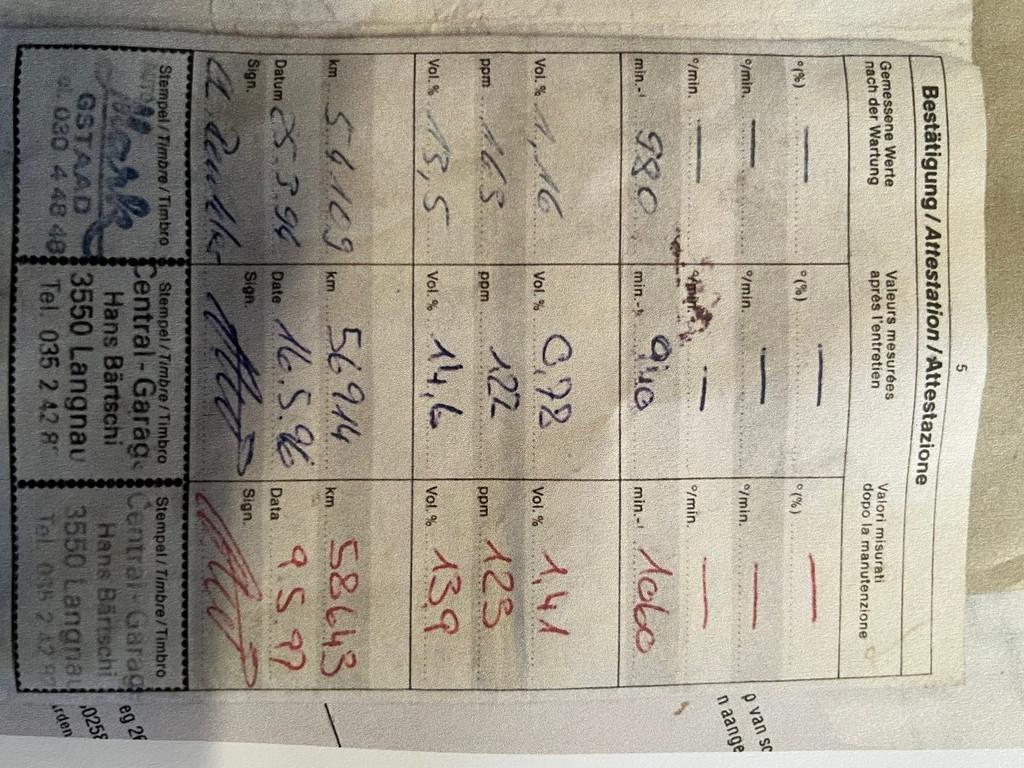 5
Bestätigung / Attestation / Attestazione
Gemessene Werte
nach der Wartung
Valeurs mesurées
après l'entretien
Valori misurati
dopo la manutenzione
°(%) — °(%) — °(%) —
°/min. — °/min. — °/min. —
°/min. — °/min. — °/min. —
min.-¹ 980 min.-¹ 940 min.-¹ 1060
Vol. % 1,16 Vol. % 0,78 Vol. % 1,41
ppm 163 ppm 122 ppm 123
Vol. % 13,5 Vol. % 14,6 Vol. % 13,9
km 54.109 km 56914 km 58643
Datum 25.3.94 Date 16.5.96 Data 9.5.97
Sign. Sign. Sign.
Stempel / Timbre / Timbro Stempel / Timbre / Timbro Stempel / Timbre / Timbro
GSTAAD
030 4 48 48
Central-Garage
Hans Bärtschi
3550 Langnau
Tel. 035 2 42 8
Central-Garag
Hans Bärtschi
3550 Langnau
Tel. 035 2 42 8
p van
n aange
eg
0258
rden